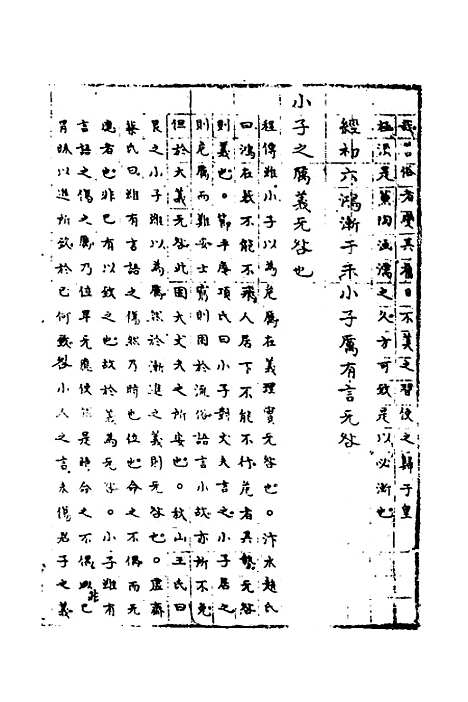 發善俗者變其舊日不美之習使之歸于皇
極須是薰陶涵濡之久方可致是以必漸也
經初六鴻漸于干小子厲有言无咎
小子之厲義无咎也
程傳雖小子以為危厲在義理實无咎也。汴水趙氏
曰鴻在我不能不飛人居下不能不行危者其勢无咎
則義也。節齊蔡項氏曰小子對丈夫言之小子居之
則危厲而難安士窮則困於流俗語言小故亦所不免
但於大義无咎此固大丈夫之所安也。秋山王氏曰
艮之小子雖以為厲然於漸進之義則无咎也。虛齋
蔡氏曰雖有言語之傷然乃時也位也命之不偶而无
應者也非已有以致之也故於義為无咎。小子雖有
言語之傷之厲乃位卑无應使然是時命之不偶非已
冒昧以進所致於已何咎小人之言未傷君子之義